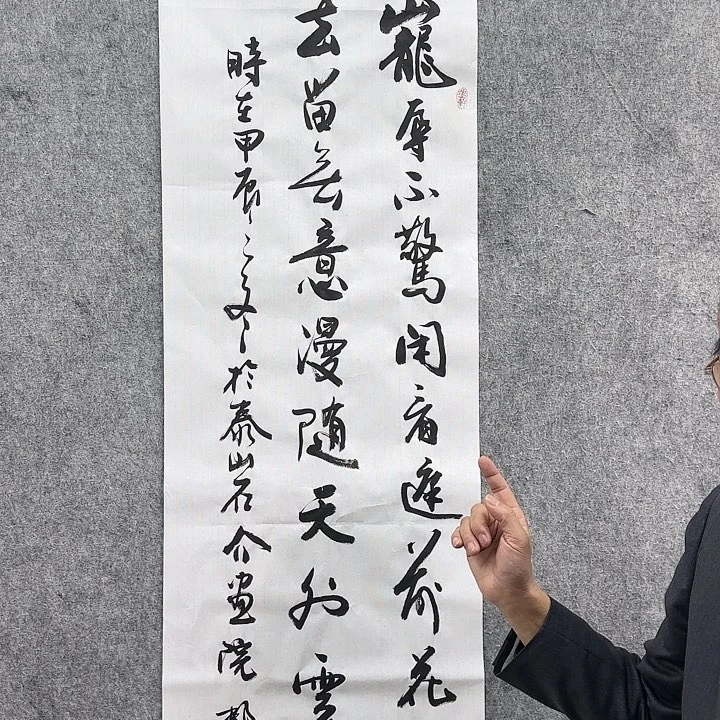 寵辱不驚閑看庭前花
去留無意漫隨天外雲
時在甲辰之夏於泰山石介畫院